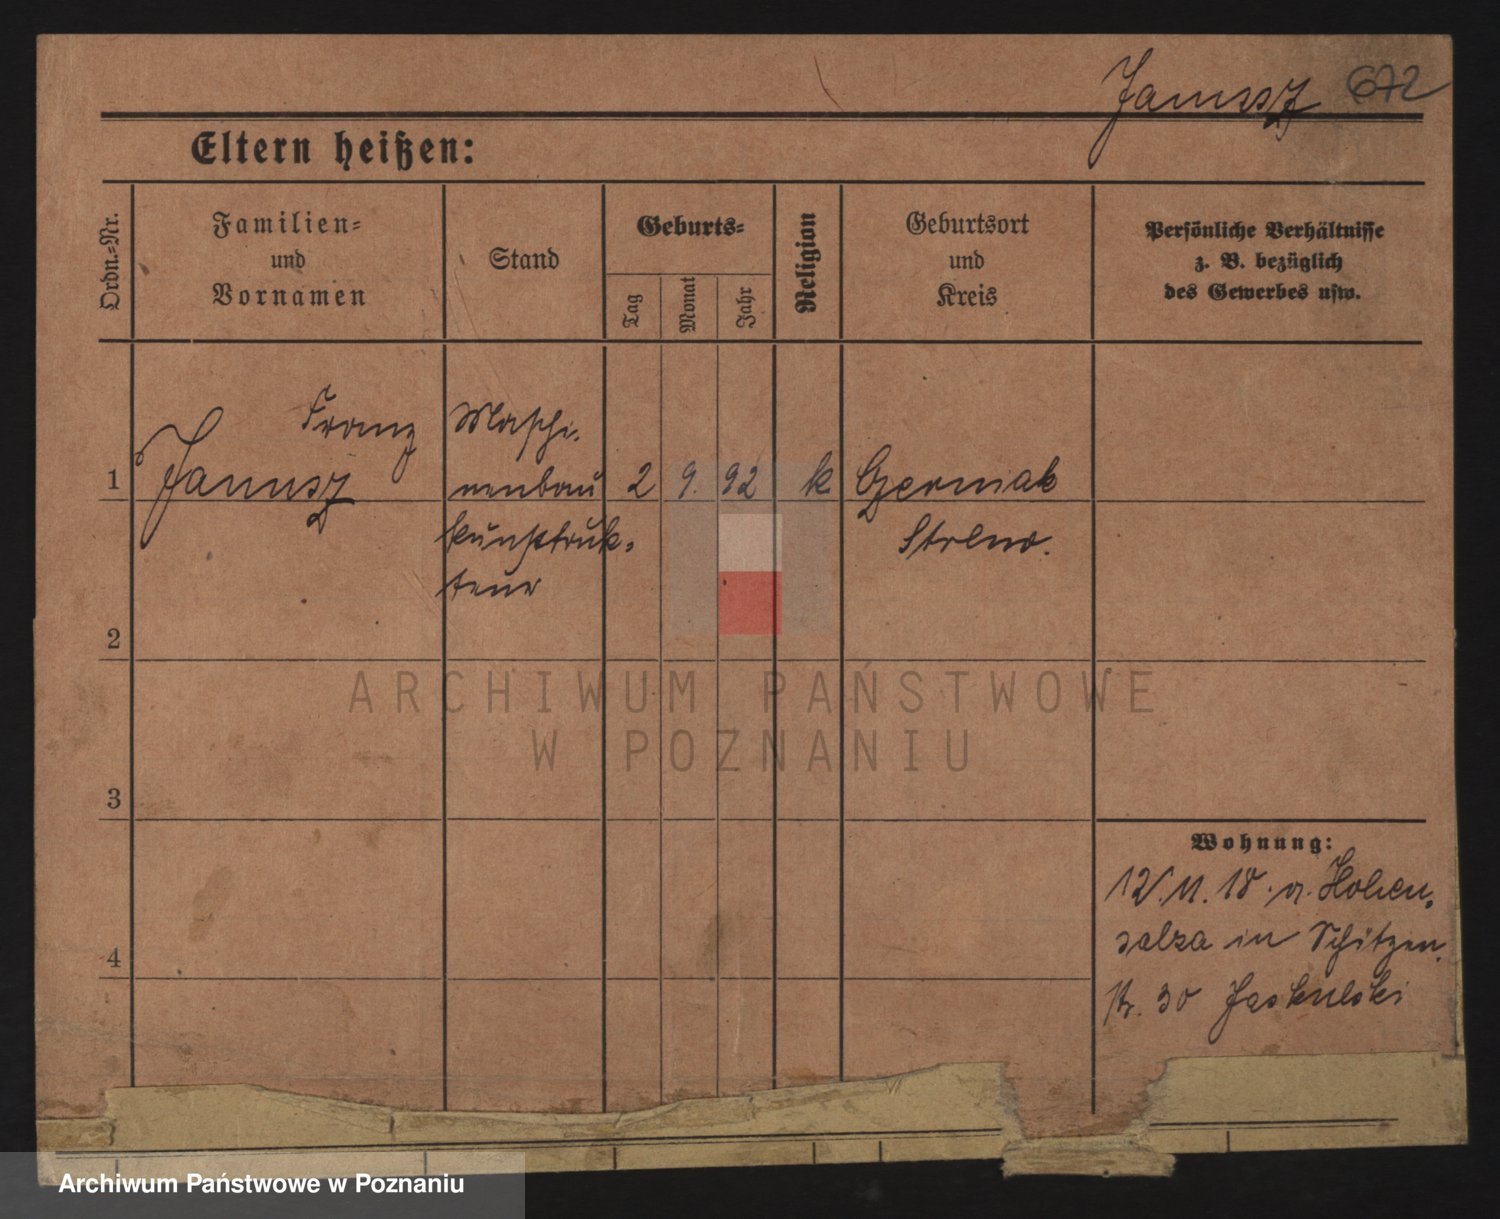 Janusz 672
Eltern heißen:
Ordn.-Nr.
Familien-
und
Vornamen
Stand
Geburts-
Tag
Monat
Jahr
Religion
Geburtsort
und
Kreis
Persönliche Verhältnisse
z. B. bezüglich
des Gewerbes usw.
Franz
Janusz
Maschi-
nenbau
kunstruk-
teur
1
2 9. 92
k
Czerniak
Strelno.
2
3
4
ARCHIWUM PAŃSTWOWE
W POZNANIU
Wohnung:
12.11.18. n. Hohen-
salza in Schützen
str. 30 Jaskulski
Archiwum Państwowe w Poznaniu